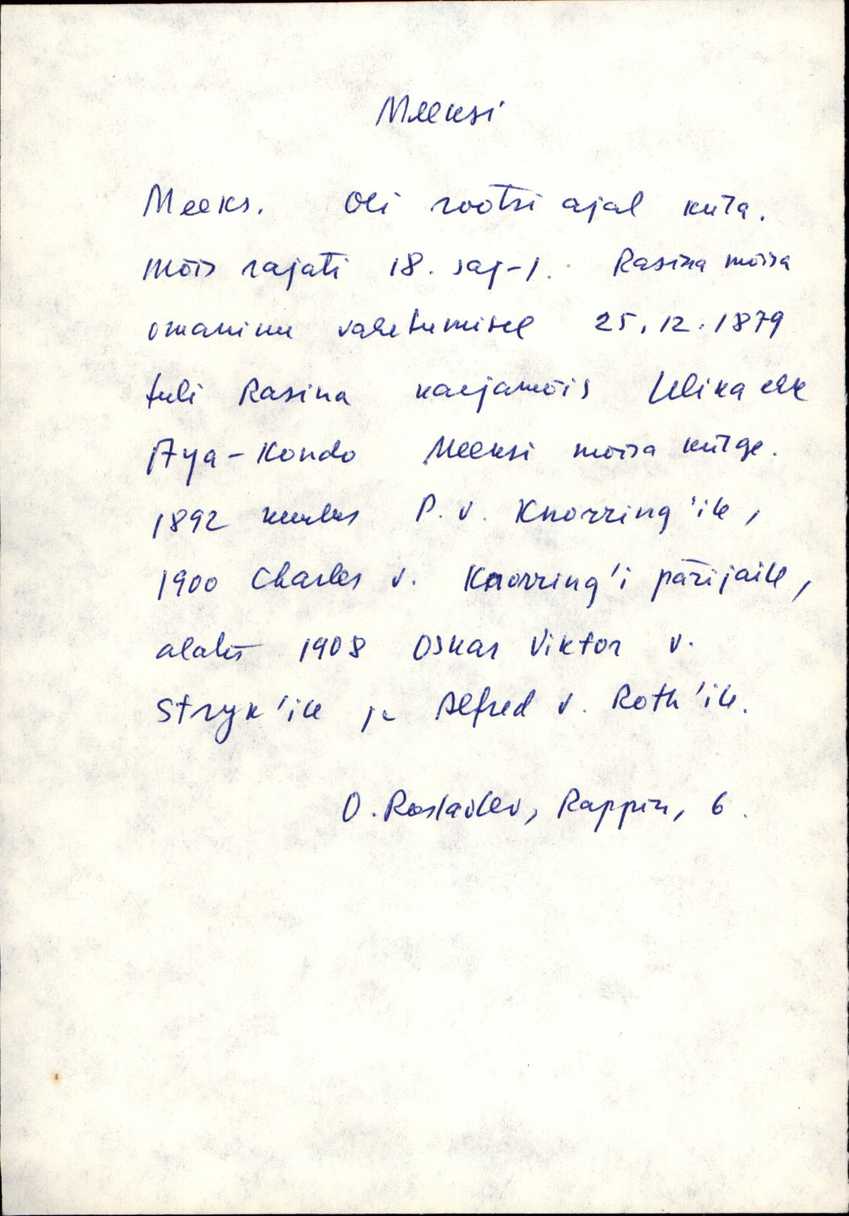 Meeksi
Meeks. Oli rootsi ajal küla.
Mõis rajati 18. saj-l. Rasina mõisa
omaniku vahetumisel 25.12.1879
tuli Rasina karjamõis ehk
Aya-Kondo Meeksi mõisa külge.
1892 kuulus P. v. Knorring'ile,
1900 Charles v. Knorring'i pärijaile,
alates 1908 Oskar Viktor v.
Stryk'ile ja Alfred v. Roth'ile.
O. Roslavlev, Rappin, 6.